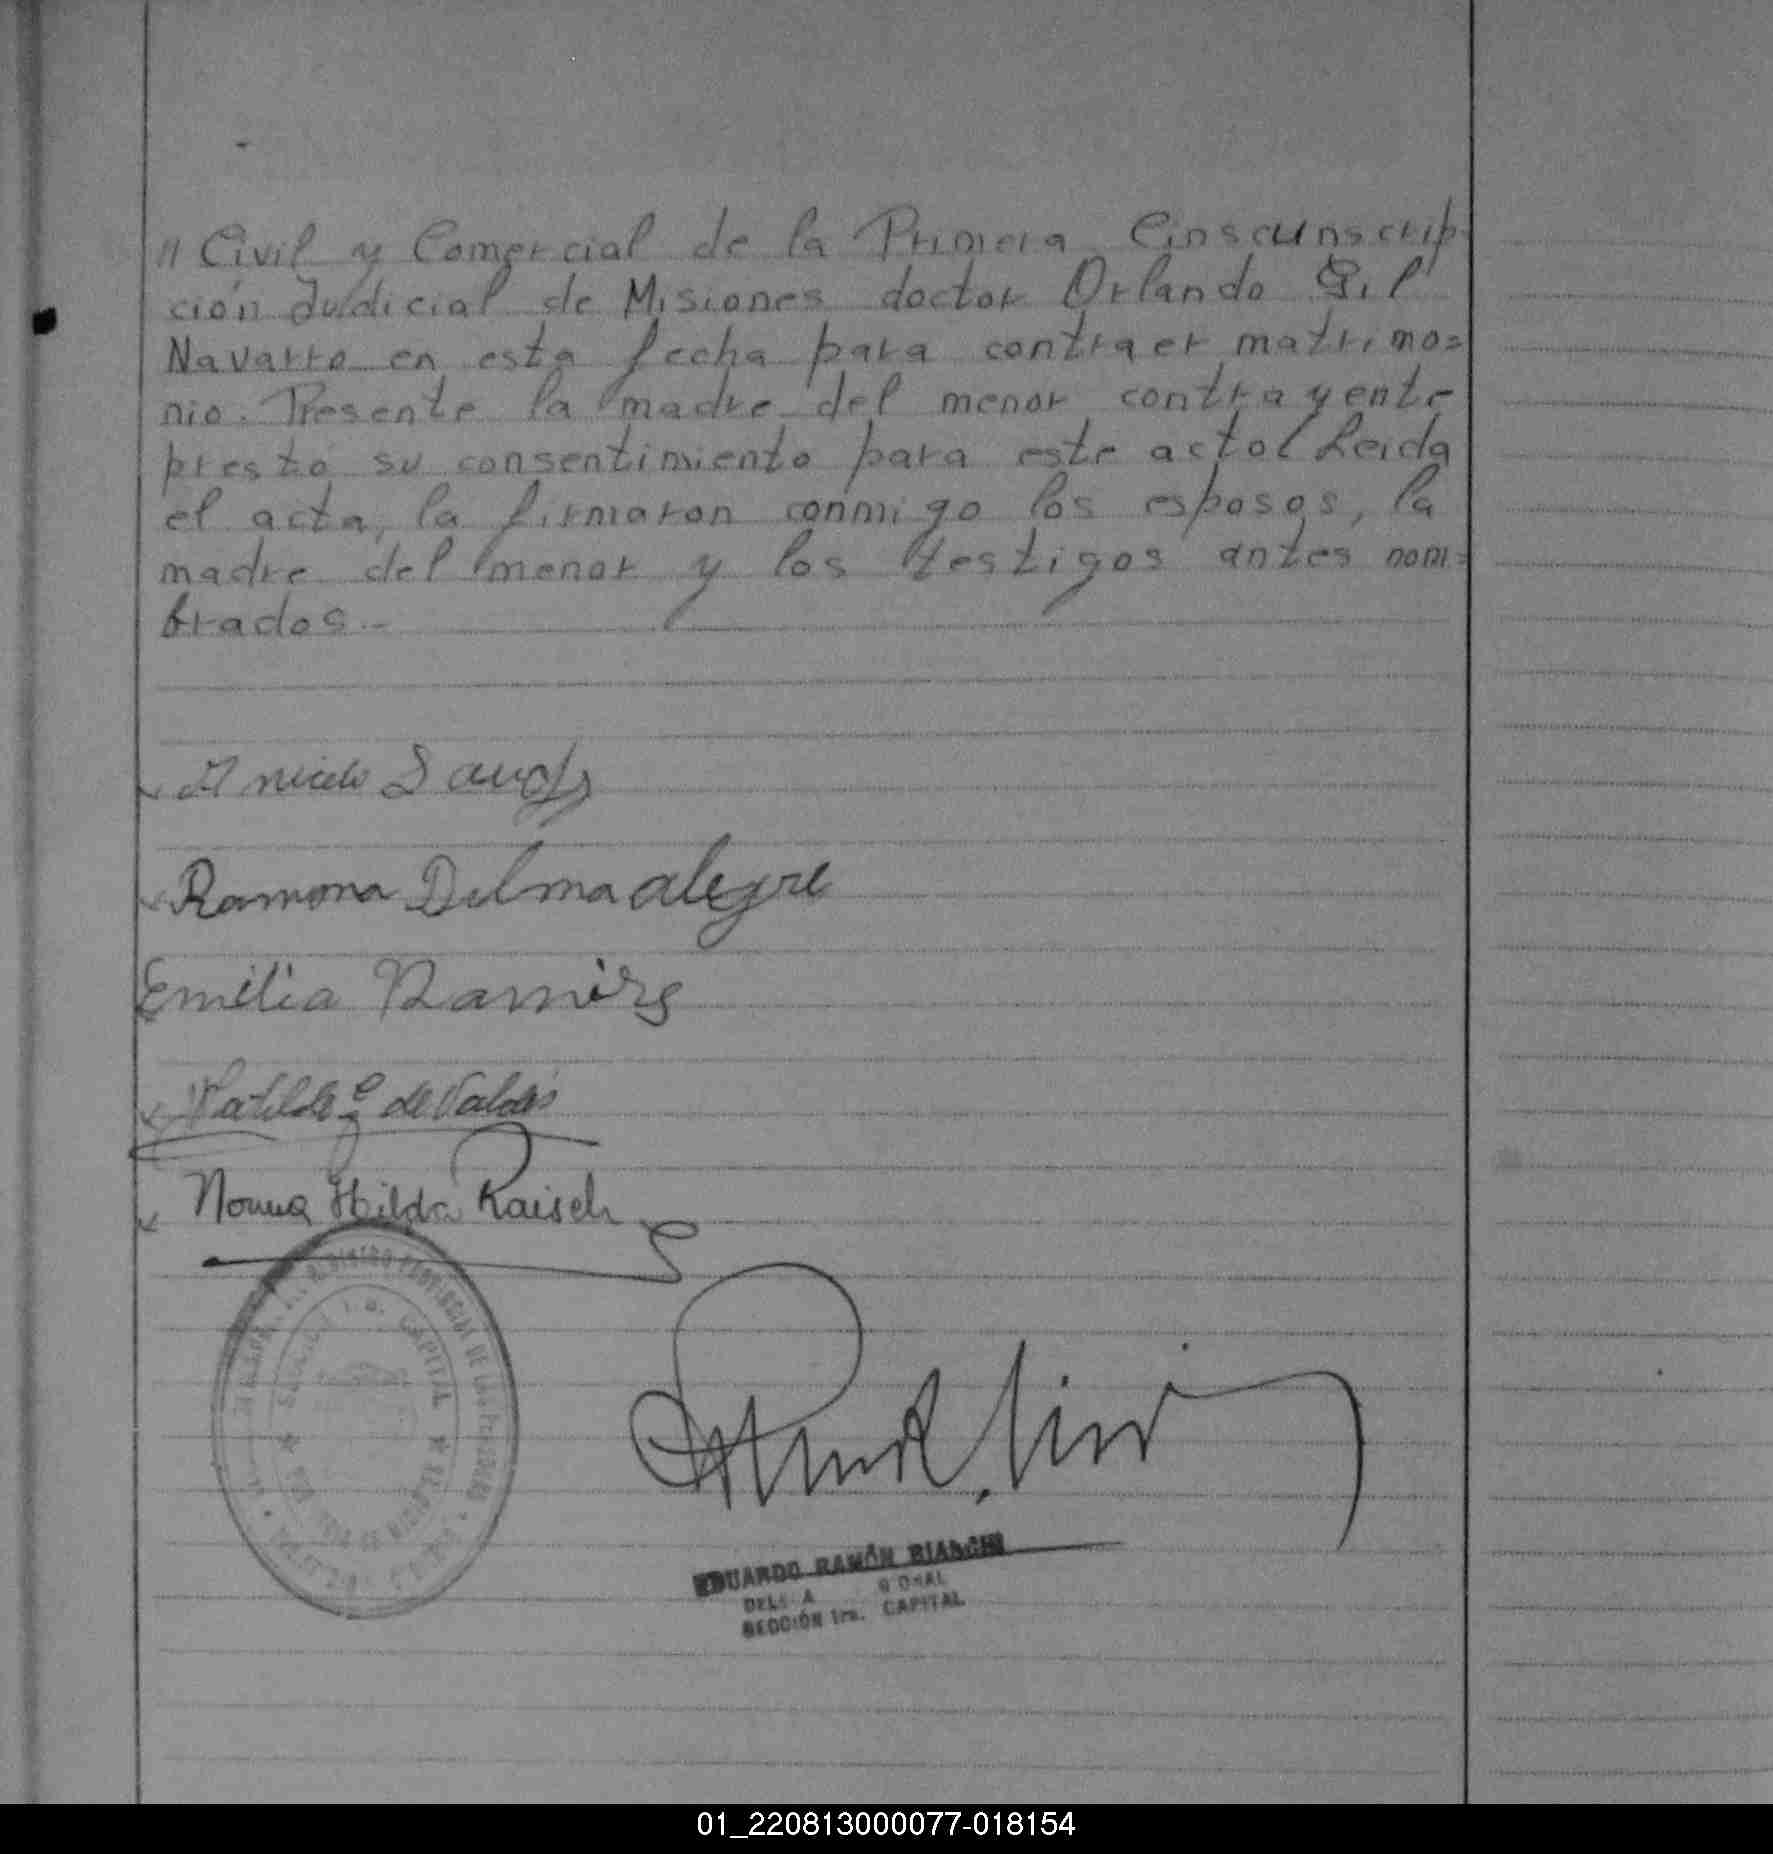 // Civil y Comercial de la Primera Cinscunscrip-
ción Judicial de Misiones doctor Orlando Gil
Navarro en esta fecha para contraer matrimo=
nio. Presente la madre del menor contrayente
prestó su consentimiento para este acto. Leida
el acta, la firmaron conmigo los esposos, la
madre del menor y los testigos antes nom=
brados.-
Aniceto
Ramona Delma alegre
Emilia Ramirez
Matilde G de Valdés
Norma Hilda Raisch
REGISTRO PROVINCIAL DE LAS PERSONAS
CAPITAL
EDUARDO RAMÓN BIANCHI
SECCIÓN 1ra. CAPITAL
01_220813000077-018154